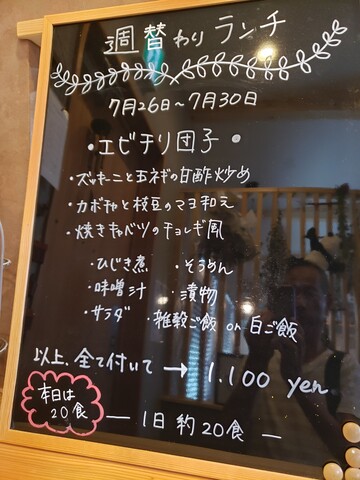 週替わりランチ
7月26日～7月30日
・エビチリ団子・
・ズッキーニと玉ネギの甘酢炒め
・カボチャと枝豆のマヨ和え
・焼きキャベツのチョレギ風
・ひじき煮 ・そうめん
・味噌汁 ・漬物
・サラダ ・雑穀ご飯 or 白ご飯
以上、全て付いて → 1.100 yen
本日は
20食
― 1日 約20食 ―